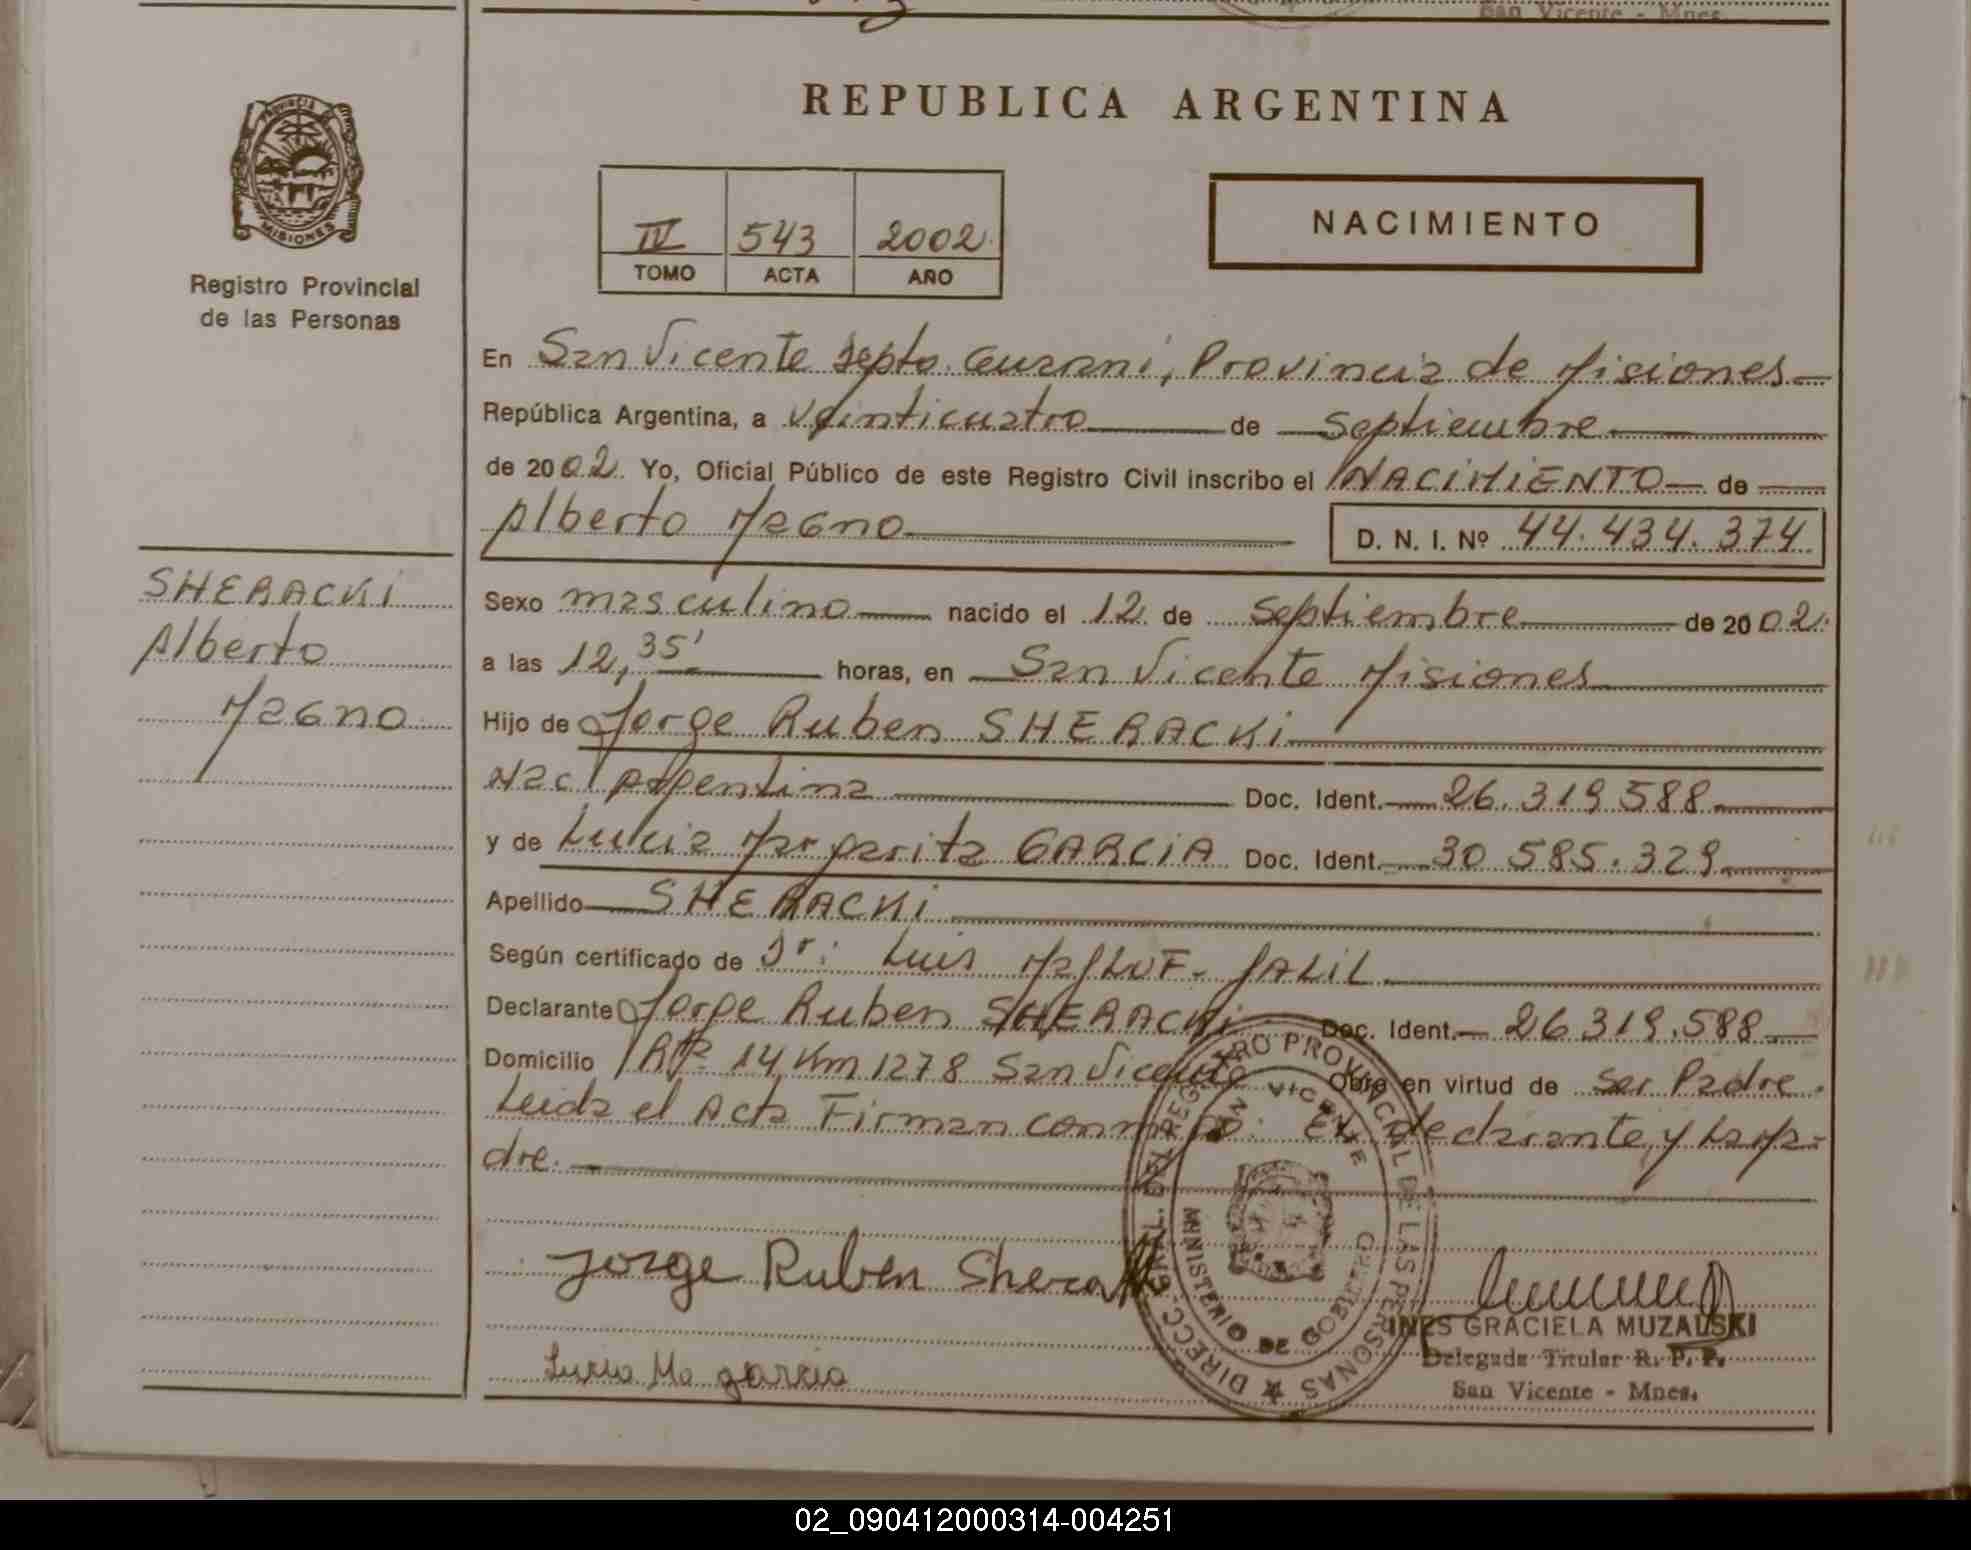 San Vicente - Mnes.
REPUBLICA ARGENTINA
PROVINCIA DE
MISIONES
Registro Provincial
de las Personas
IV 543 2002
TOMO ACTA AÑO
NACIMIENTO
En San Vicente Depto. Guarani, Provincia de Misiones
República Argentina, a veinticuatro de septiembre
de 2002. Yo, Oficial Público de este Registro Civil inscribo el NACIMIENTO de
Alberto Magno
D. N. I. Nº 44.434.374
SHERACKi
Alberto
Magno
Sexo masculino nacido el 12 de septiembre de 2002.
a las 12,35' horas, en San Vicente Misiones
Hijo de Jorge Ruben SHERACKi
Nac. Argentina Doc. Ident. 26.319.588
y de Lucia Margarita GARCiA Doc. Ident. 30.585.329
Apellido SHERACKi
Según certificado de Dr: Luis MaJLUF. JALIL
Declarante Jorge Ruben SHERACKi Doc. Ident. 26.319.588
Domicilio 14 Km 1278 San Vicente Obra en virtud de ser Padre.
Leida el Acta Firman conmigo: EL declarante y La Ma-
dre.
DIRECC. GRAL. DEL REGISTRO PROVINCIAL DE LAS PERSONAS
SAN VICENTE
MINISTERIO DE GOBIERNO
Jorge Ruben
Lucia Ma garcia
INES GRACIELA MUZALSKI
Delegada Titular R. P. P.
San Vicente - Mnes.
02_090412000314-004251